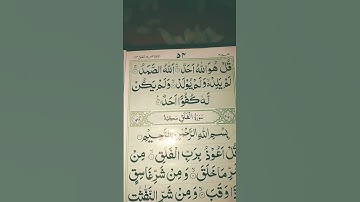 ۵۴
قُلْ هُوَ اللّٰهُ اَحَدٌ اَللّٰهُ الصَّمَدُ
لَمْ يَلِدْ وَلَمْ يُوْلَدْ وَلَمْ يَكُنْ
لَّهٗ كُفُوًا اَحَدٌ
سُوْرَةُ الْفَلَقِ
بِسْمِ اللّٰهِ الرَّحْمٰنِ الرَّحِيْمِ
قُلْ اَعُوْذُ بِرَبِّ الْفَلَقِ مِنْ
شَرِّ مَا خَلَقَ وَمِنْ شَرِّ غَاسِقٍ
اِذَا وَقَبَ وَمِنْ شَرِّ النَّفّٰثٰتِ